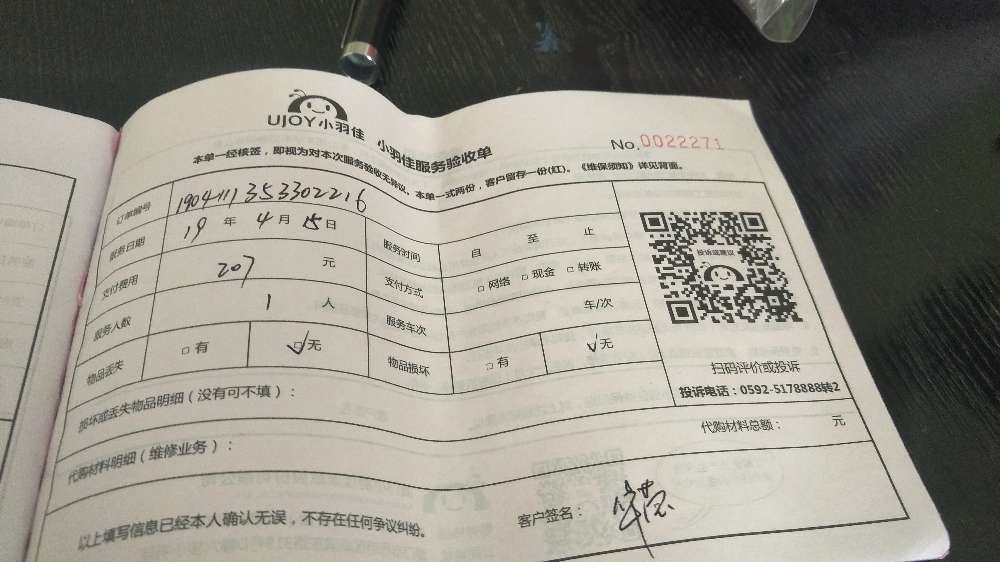 UJOY小羽佳 小羽佳服务验收单
No.0022271
本单一经核签，即视为对本次服务验收无异议。本单一式两份，客户留存一份(红)。《维保须知》详见背面。
订单编号 190411353302216
服务日期 19 年 4 月 15 日 服务时间 自 至 止
支付费用 207 元 支付方式 □ 网络 □ 现金 □ 转账
服务人数 1 人 服务车次 车/次
物品丢失 □ 有 □ 无 物品损坏 □ 有 无
投诉或建议
扫码评价或投诉
投诉电话：0592-5178888转2
损坏或丢失物品明细（没有可不填）：
代购材料明细（维修业务）： 代购材料总额： 元
以上填写信息已经本人确认无误，不存在任何争议纠纷。 客户签名：